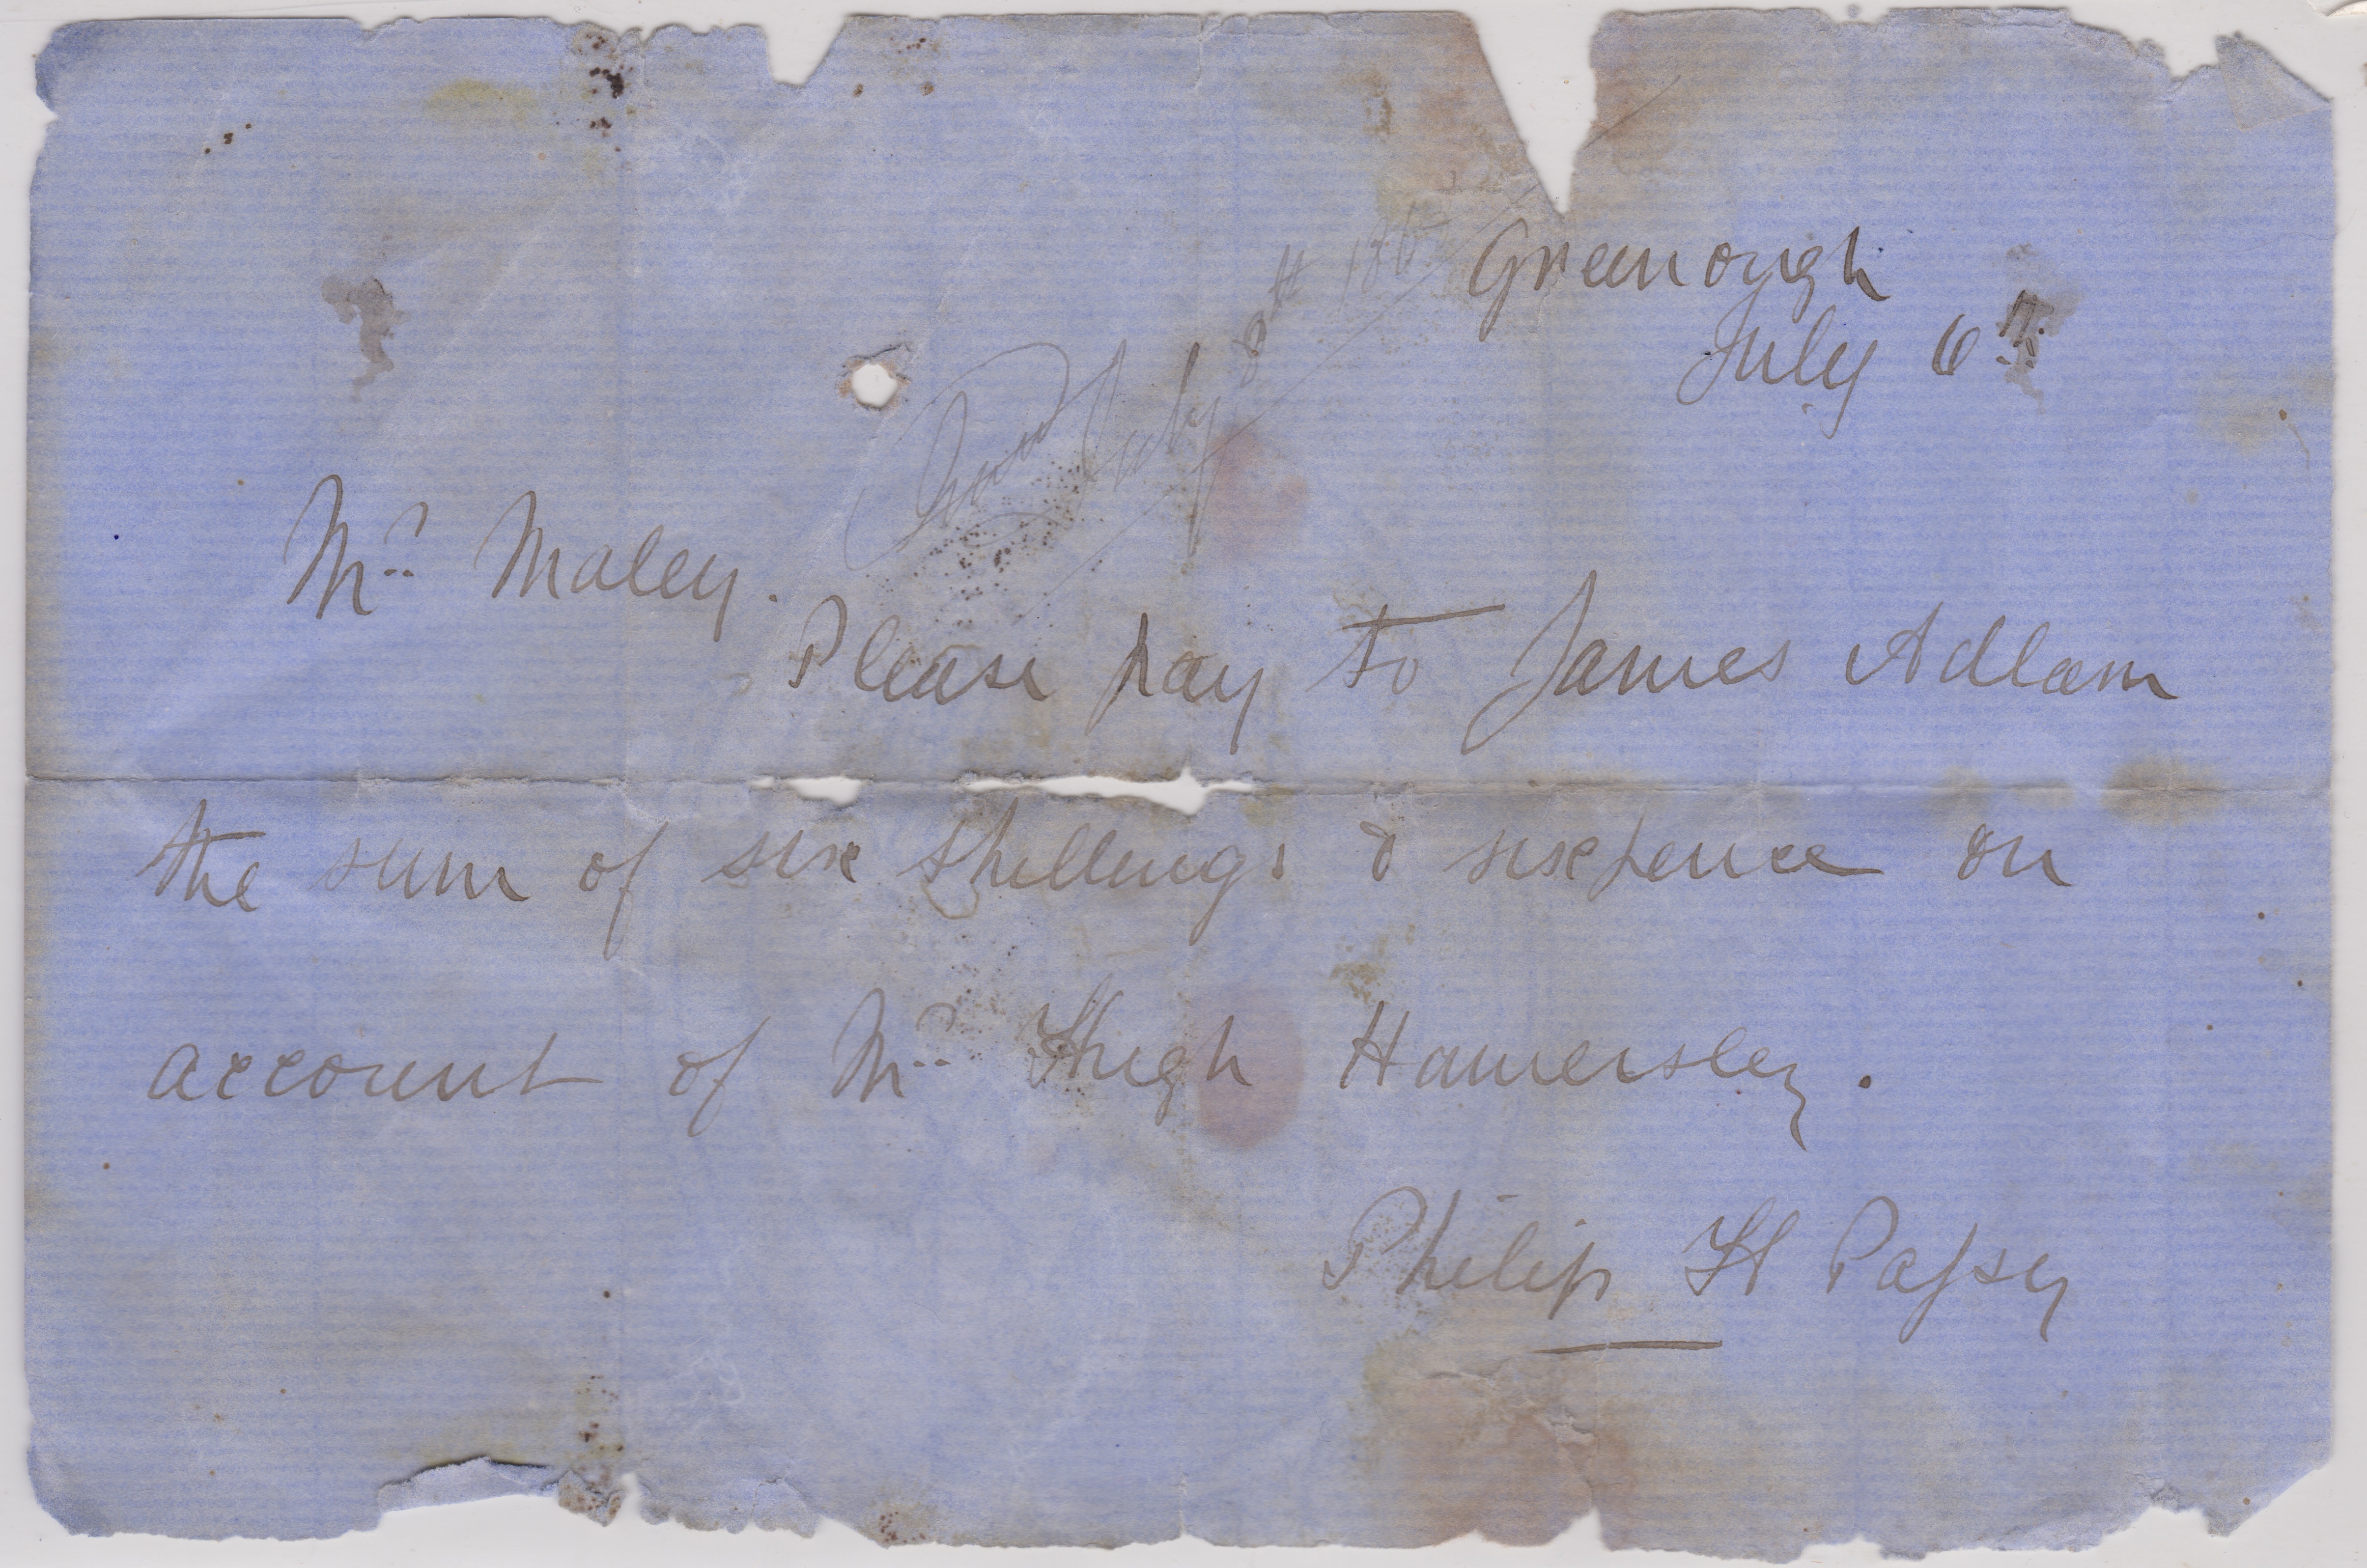 Greenough
July 6th
Paid July 8th 186
Mr. Maley.
Please pay to James Adlam
the sum of six shillings & sixpence on
account of Mr. Hugh Hamersley.
Philip H Passey